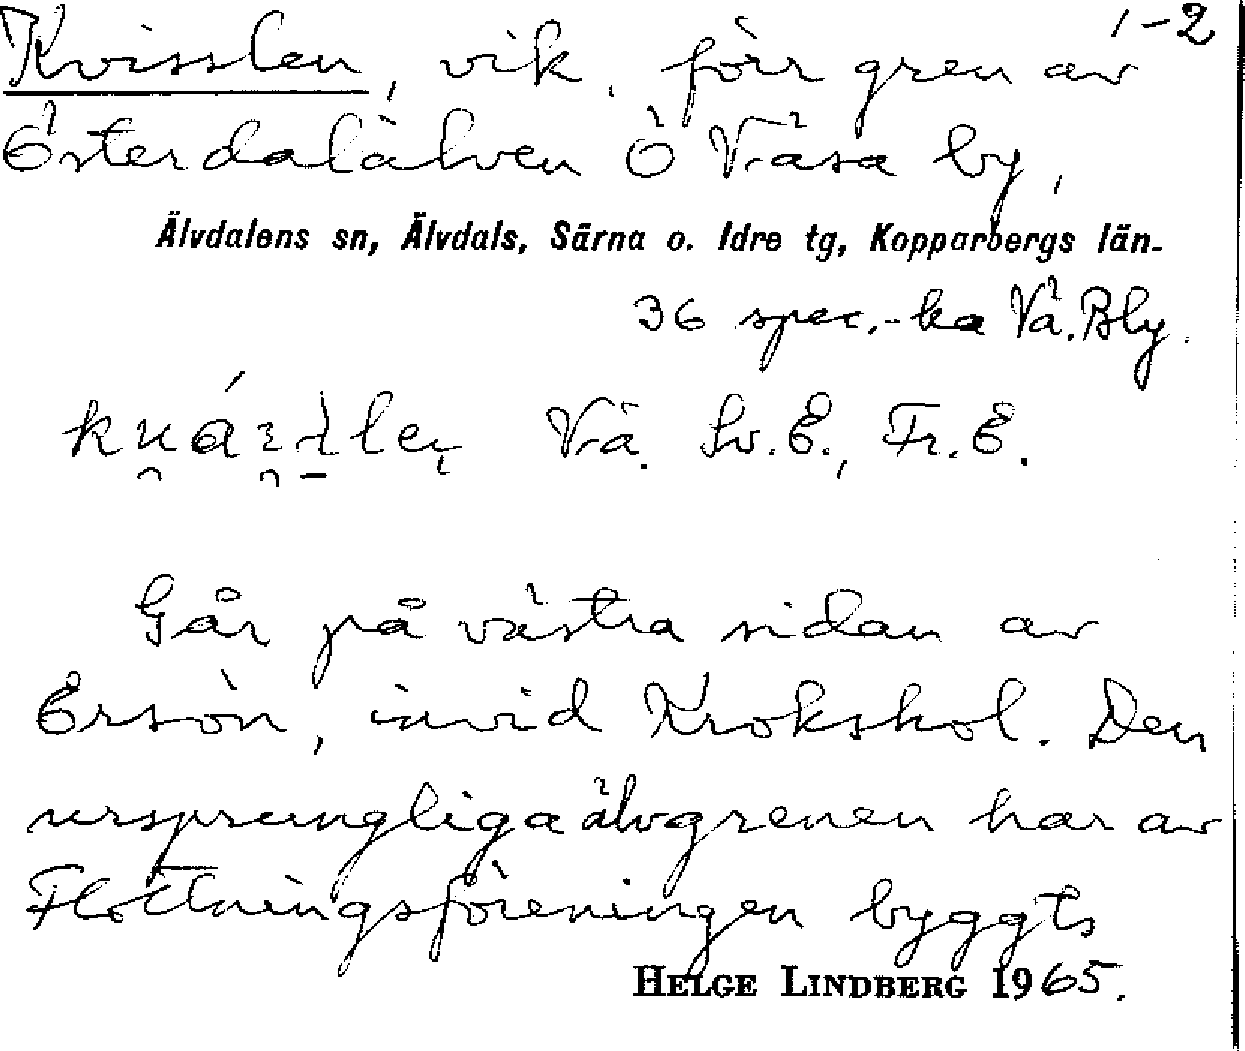 1-2
Kvisslen, vik, förr gren av
Österdalälven Ö Väsa by,
Älvdalens sn, Älvdals, Särna o. Idre tg, Kopparbergs län.
36 spec.-ka Vä. Bly.
Vä. Sv. E., Fr. E.
Går på västra sidan av
Ersön, invid Krokshol. Den
ursprungliga älvgrenen har av
Flottningsföreningen byggts
HELGE LINDBERG 1965.